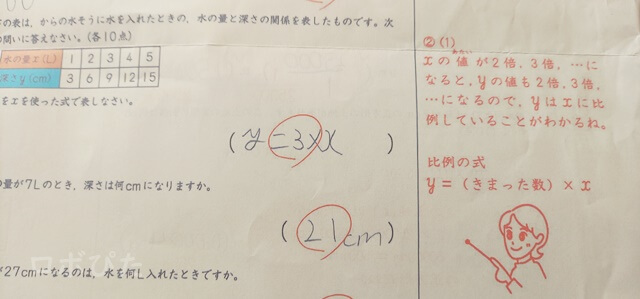 の表は、からの水そうに水を入れたときの、水の量と深さの関係を表したものです。次
の問いに答えなさい。(各10点)
水の量x(L) 1 2 3 4 5
深さy(cm) 3 6 9 12 15
をxを使った式で表しなさい。
(y=3×x)
の量が7Lのとき、深さは何cmになりますか。
(21cm)
が27cmになるのは、水を何L入れたときですか。
②(1)
xの値が2倍, 3倍, …に
なると, yの値も2倍, 3倍,
…になるので, yはxに比
例していることがわかるね。
比例の式
y=(きまった数)×x
ロボぴた